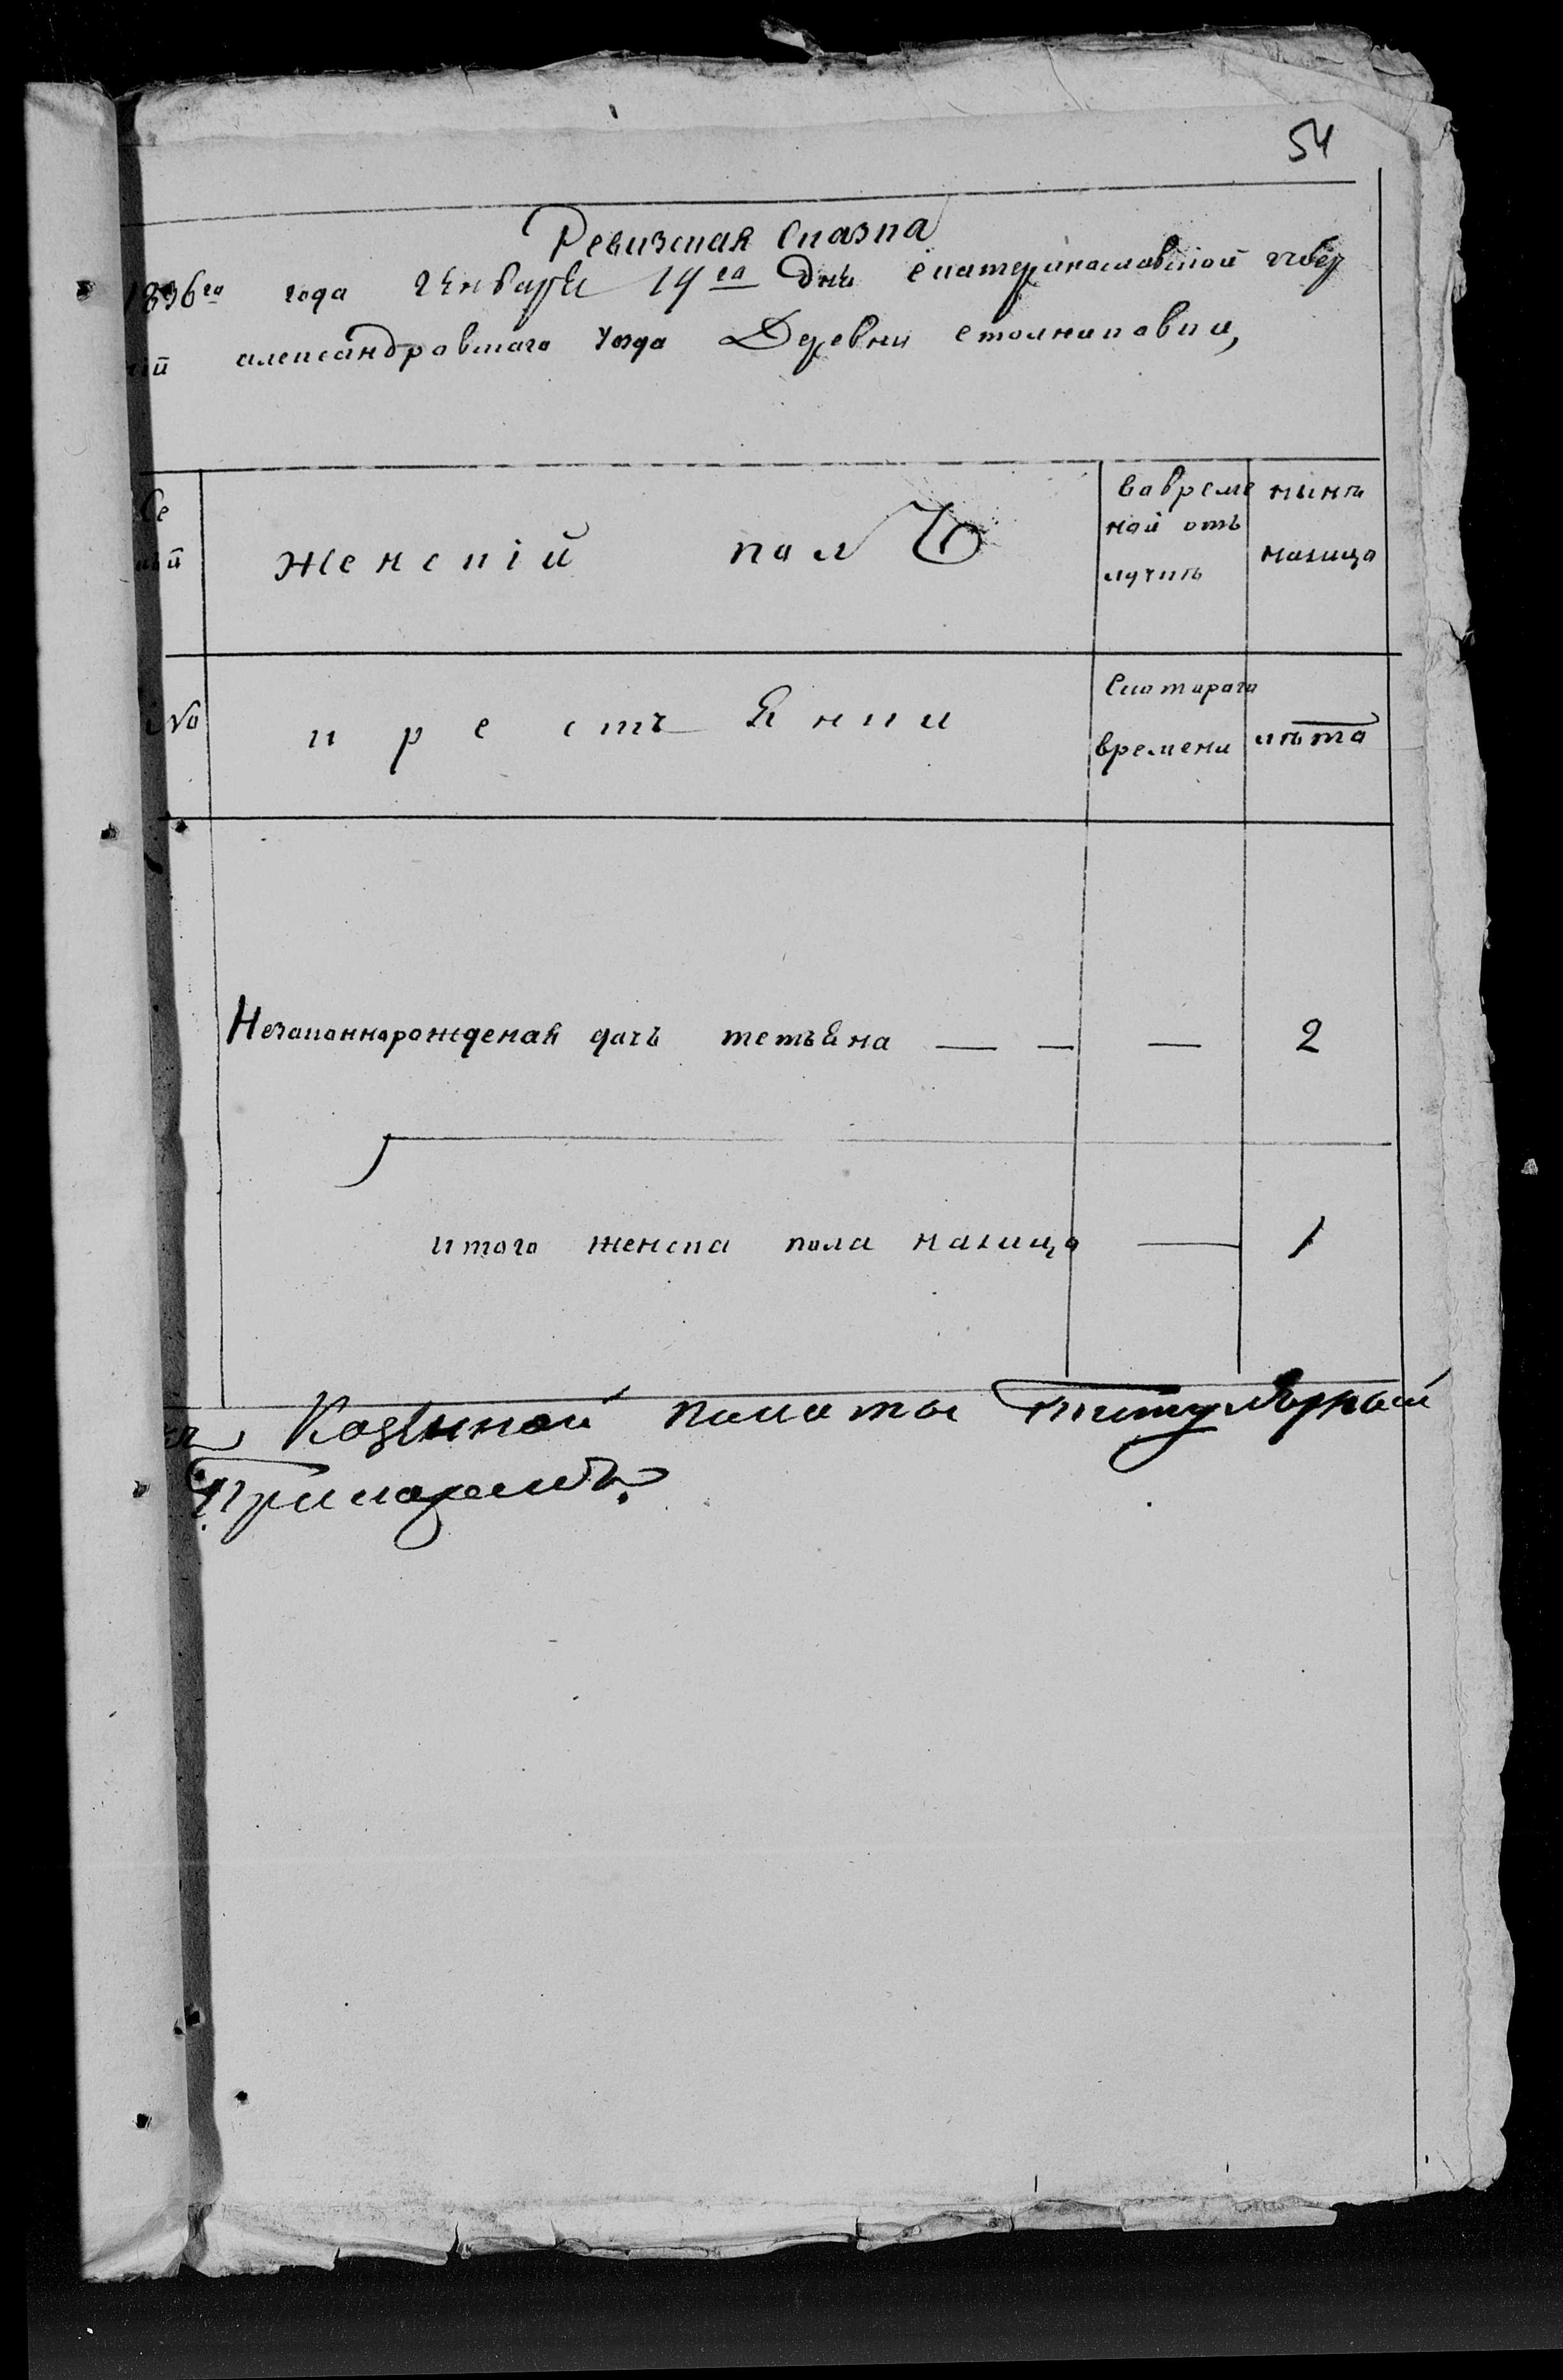 54
Ревизская Сказка
1836го года Генваря 14го дня екатеринославской губер
нiй александровскаго уѣзда Деревни столниковки,
Се
мьй
женскiй полъ
вовреме
ной отъ
лучкѣ
нынѣ
налицо
No
крестьянки
Скотораго
времени
лѣта
Незаконнорожденая дочь тетьяна — — — 2
итого женска пола налицо — 1
Казенной палаты титулярный